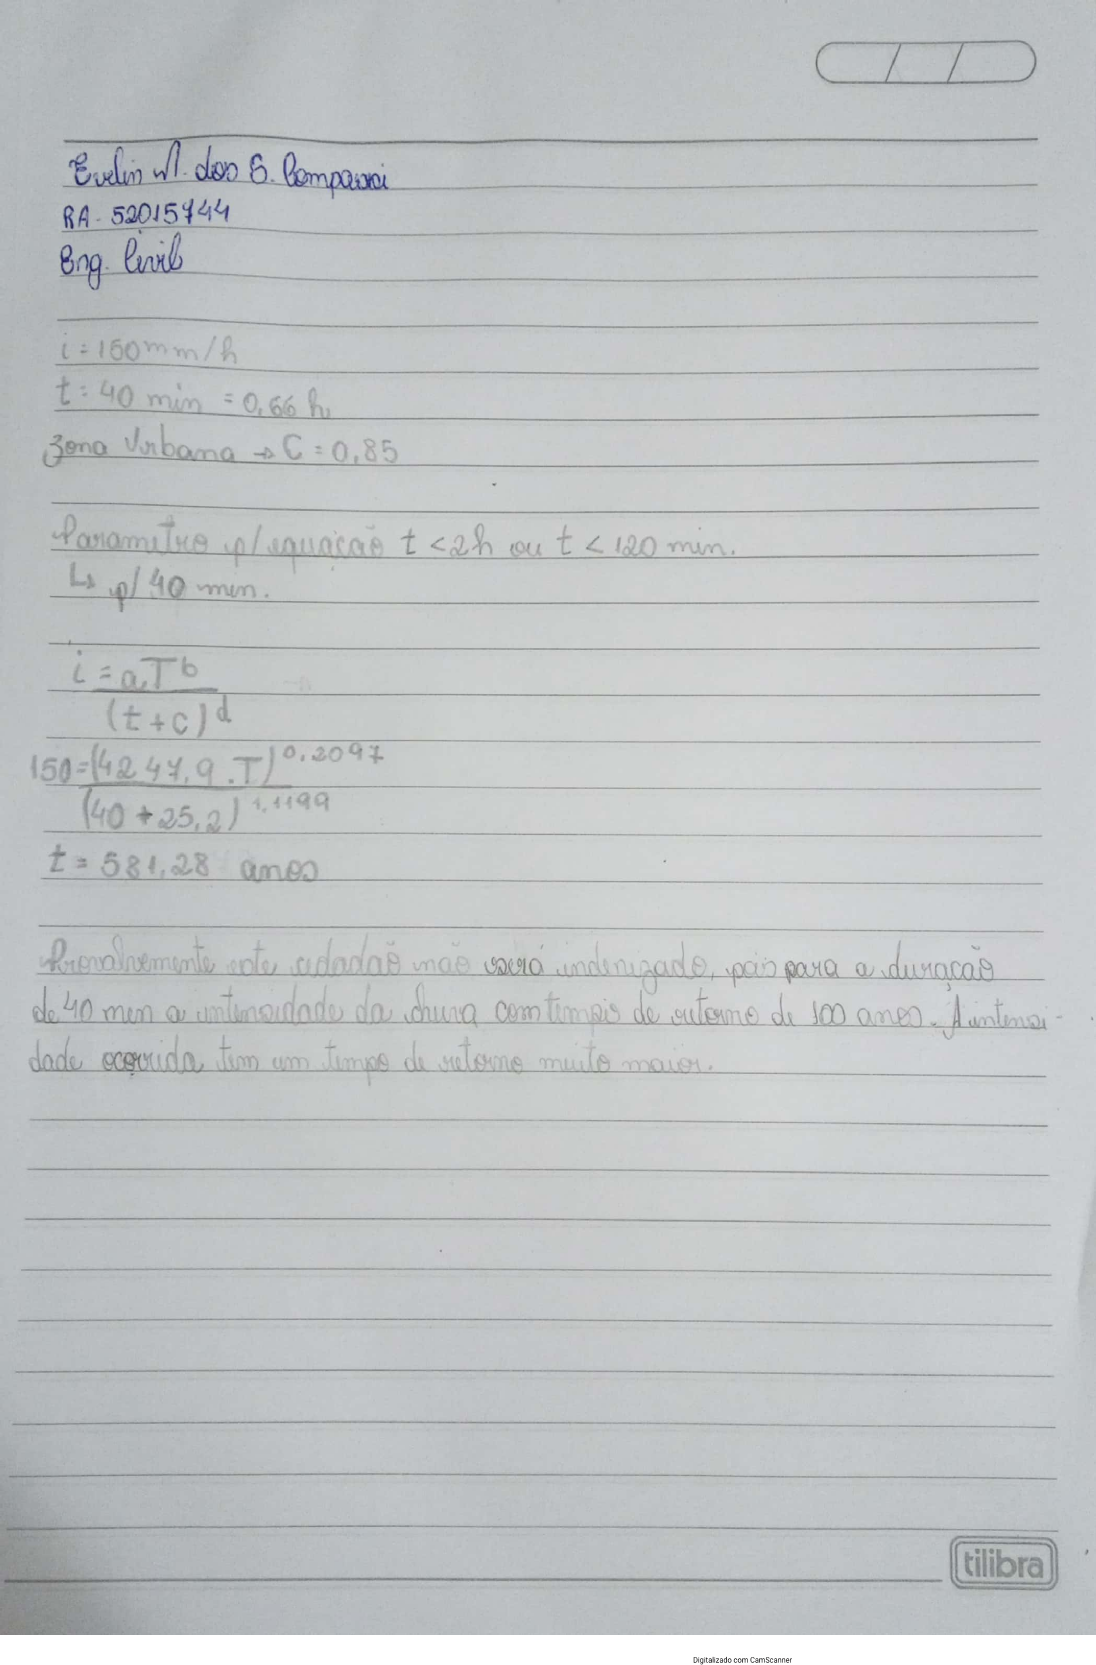 Evelin M. dos S. Campassi
RA - 52015744
Eng. Civil
i = 150 mm/h
t = 40 min = 0,66 h
Zona Urbana → C = 0,85
Parametro p/ equação t < 2h ou t < 120 min.
↳ p/ 40 min.
i = aT^b
(t + c)^d
150 = (4247,9 . T)^0,2097
(40 + 25,2)^1,1199
t = 581,28 anos
Provalvemente este cidadaõ não será indenizado, pois para a duração
de 40 min a intensidade da chuva com tempo de retorno de 100 anos. A intensi-
dade ocorrida tem um tempo de retorno muito maior.
tilibra
Digitalizado com CamScanner